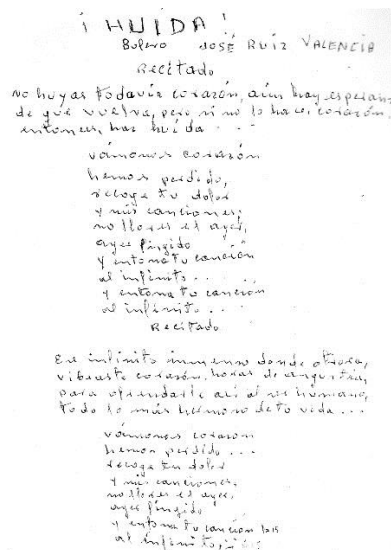 ¡ HUIDA !
Bolero JOSÉ RUIZ VALENCIA
Recitado
No huyas todavía corazón, aún hay esperanza
de que vuelva, pero si no lo hace, corazón,
entonces, haz huída . . .
vámonos corazón
hemos perdido,
recoge tu dolor
y mis canciones,
no llores el ayer,
ayer fingido
y entona tu canción
al infinito . . .
y entona tu canción
al infinito . . .
Recitado
Ese infinito inmenso donde otrora,
vibraste corazón, horas de angustia,
para ofrendarle así al ser humano,
todo lo más hermoso de tu vida . . .
vámonos corazón
hemos perdido . . .
recoge tu dolor
y mis canciones,
no llores el ayer,
ayer fingido
y entona tu canción bis
al infinito,